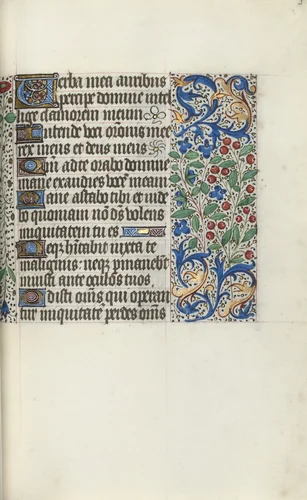 Verba mea auribus
percipe domine intel
lige clamorem meum
Intende voci orōnis mee
rex meus et deus meus
Qm̄ ad te orabo domine
mane exaudies vocē meam
Mane astabo tibi et vide
bo quoniam non dēs volens
iniquitatem tu es
Neqz hītabit iuxta te
malignus: neqz pmanebūt
iniusti ante oculos tuos
Odisti om̄s qui operan
tur iniquitatē perdes om̄s